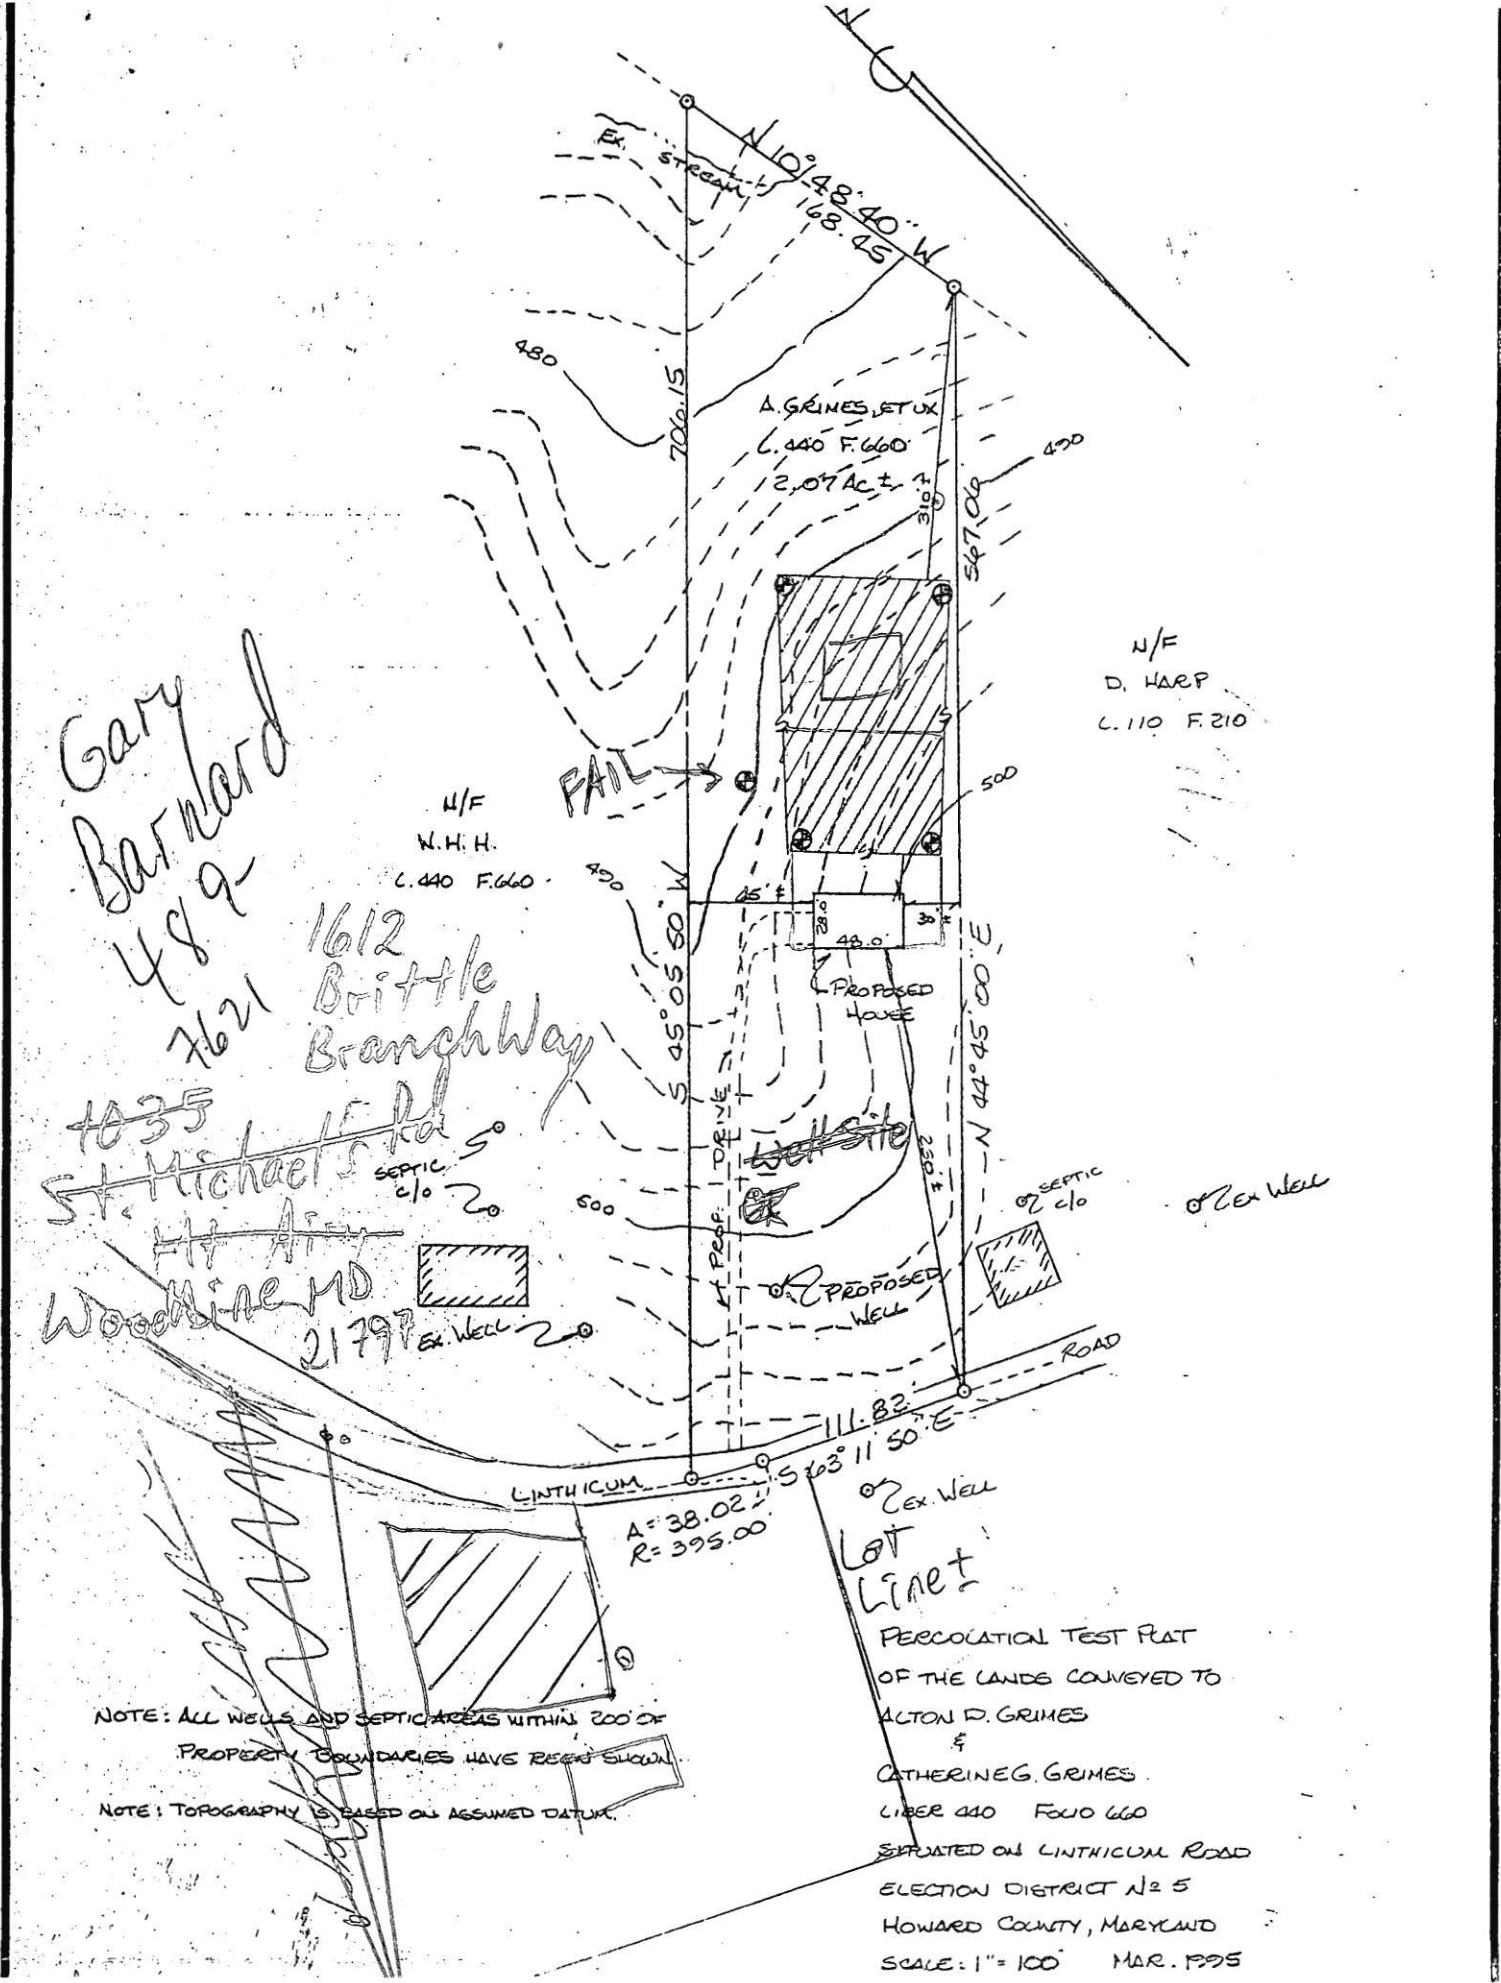 N
EX.
STREAM
N 10° 48' 40" W
168.45
480
706.15
A. GRIMES, ET UX
L. 440 F. 660
2.07 AC ±
490
310.7
567.06
N/F
D. HARP
L. 110 F. 210
Gary
Barnard
489-
7621
FAIL
500
N/F
W.H.H.
L. 440 F. 660
490
45'±
28.0
48.0
30'±
PROPOSED
HOUSE
S 45° 05' 50" W
N 44° 45' 00" E
1612
Brittle
Branch Way
1035
St. Michael's Rd
Mt Airy
Woodbine MD
21797
SEPTIC
C/O
500
EX. WELL
PROP. DRIVE
Well Site
OK
230'±
PROPOSED
WELL
SEPTIC
C/O
EX WELL
ROAD
111.82
S 63° 11' 50" E
LINTHICUM
A = 38.02
R = 395.00
EX. WELL
Lot
Line ±
NOTE: ALL WELLS AND SEPTIC AREAS WITHIN 200' OF
PROPERTY BOUNDARIES HAVE BEEN SHOWN.
NOTE: TOPOGRAPHY IS BASED ON ASSUMED DATUM.
PERCOLATION TEST PLAT
OF THE LANDS CONVEYED TO
ALTON D. GRIMES
&
CATHERINE G. GRIMES
LIBER 440 FOLIO 660
SITUATED ON LINTHICUM ROAD
ELECTION DISTRICT No 5
HOWARD COUNTY, MARYLAND
SCALE: 1" = 100' MAR. 1995